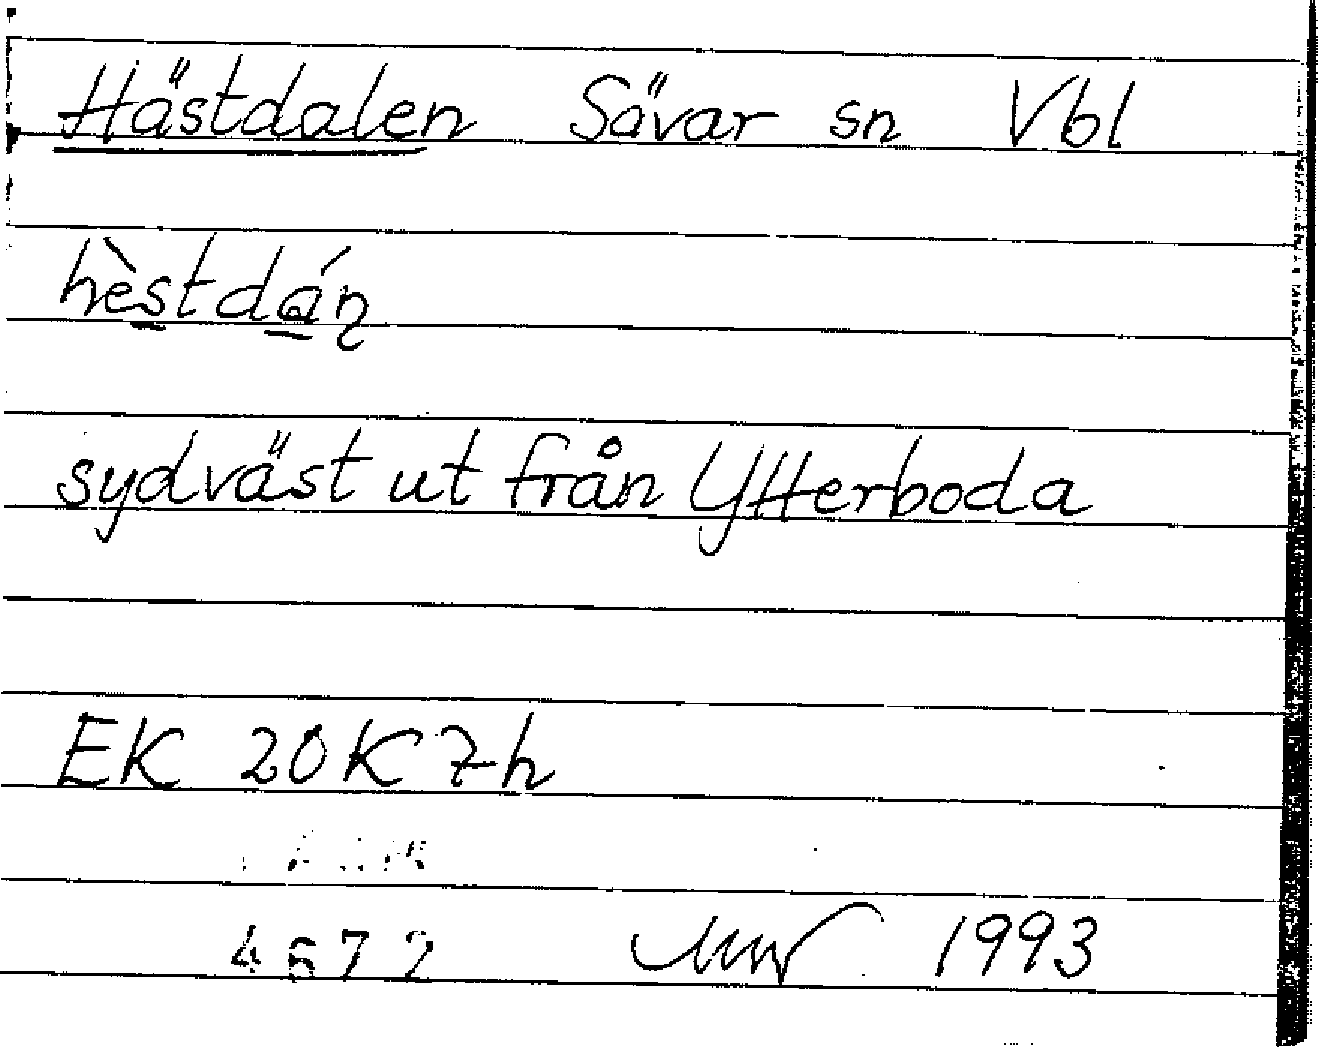 Hästdalen Sävar sn Vbl
hèstdán
sydväst ut från Ytterboda
EK 20K 7h
4672 1993